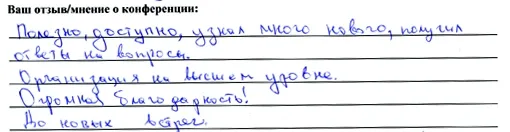 Ваш отзыв/мнение о конференции:
Полезно, доступно, узнал много нового, получил
ответы на вопросы.
Организация на высшем уровне.
Огромная благодарность!
До новых встреч.